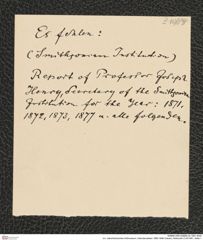 Es fehlen:
(Smithsonian Institution)
Report of Professor Joseph
Henry, Secretary of the Smithsonian
Institution for the Year: 1871,
1872, 1873, 1877 u. alle folgenden.